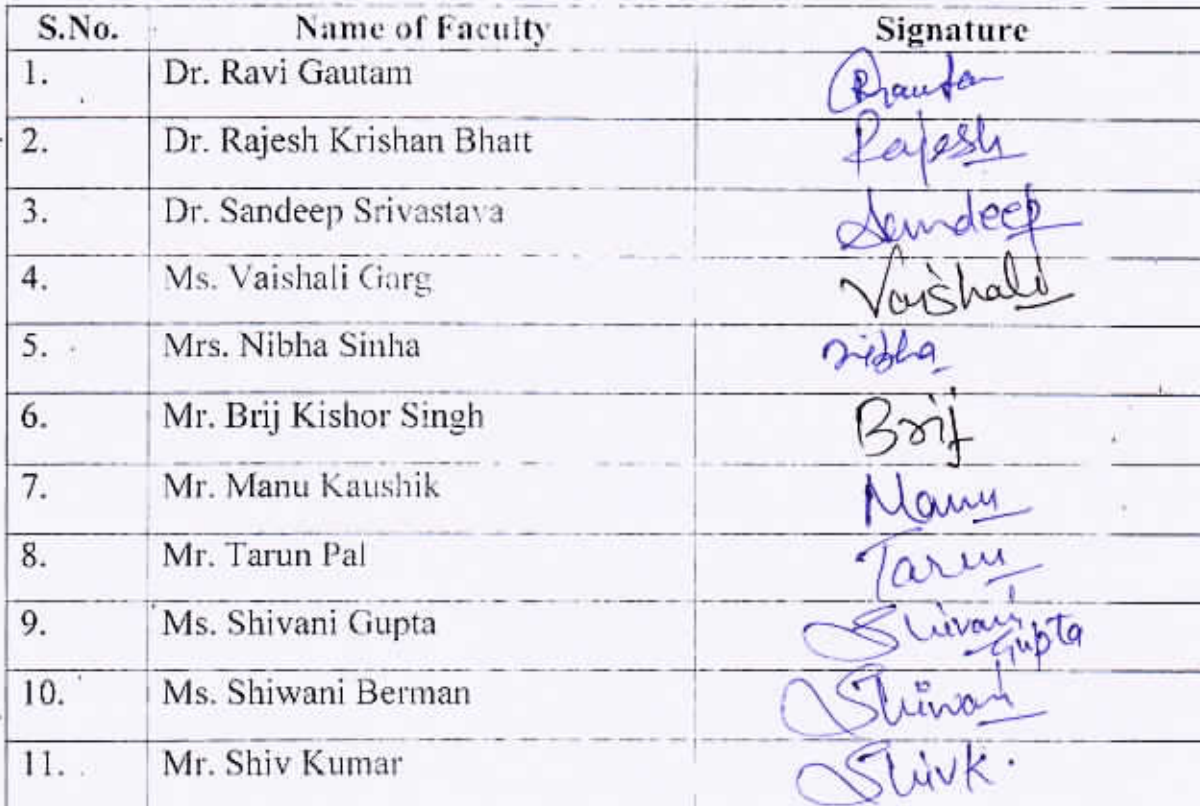 S.No. Name of Faculty Signature
1. Dr. Ravi Gautam RGautam
2. Dr. Rajesh Krishan Bhatt Rajesh
3. Dr. Sandeep Srivastava Sandeep
4. Ms. Vaishali Garg Vaishali
5. Mrs. Nibha Sinha nibha
6. Mr. Brij Kishor Singh Brij
7. Mr. Manu Kaushik Manu
8. Mr. Tarun Pal Tarun
9. Ms. Shivani Gupta Shivani
Gupta
10. Ms. Shiwani Berman Shiwani
11. Mr. Shiv Kumar ShivK.